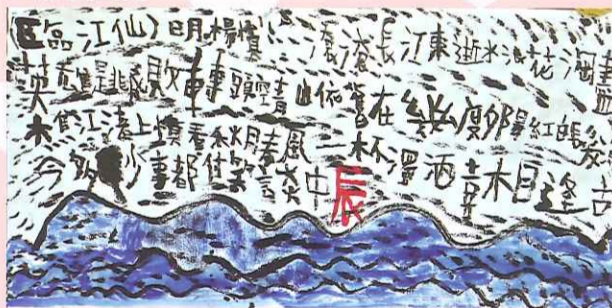 臨江仙）明楊慎 滾滾長江東逝水浪花淘盡
英雄是非成敗轉頭空青山依舊在幾度夕陽紅白髮
樵江渚上慣看秋月春風一杯濁酒喜相逢古
今多少事都付笑談中
辰